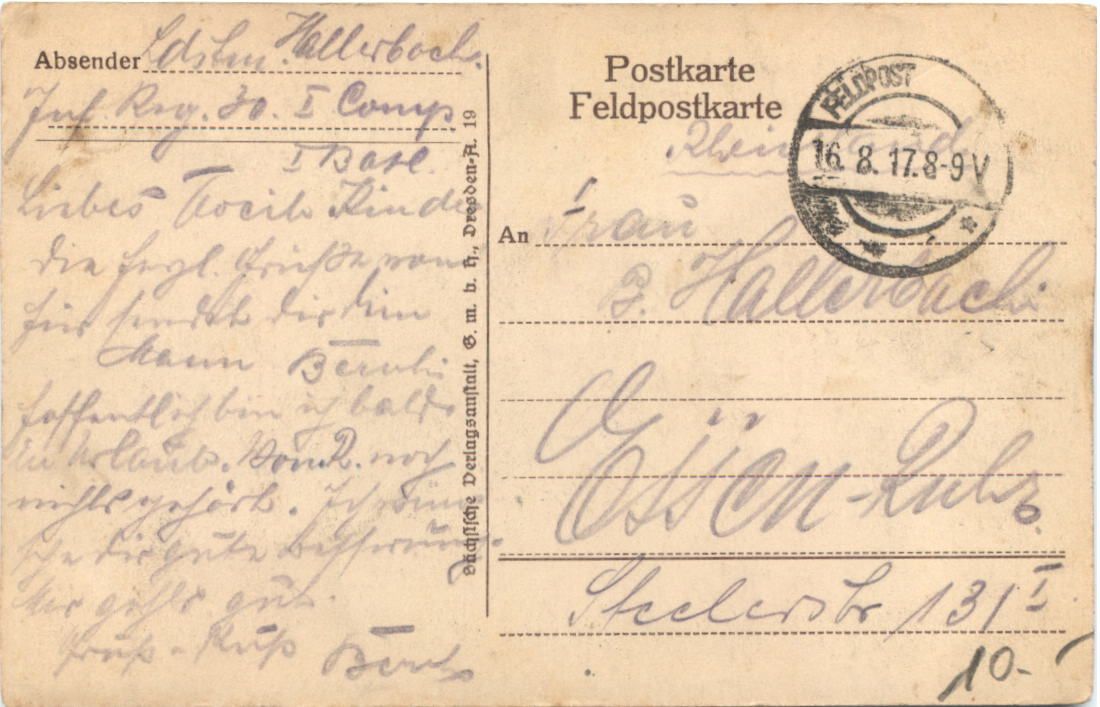 Absender Ldstm. Hallerbach.
Inf. Reg. 30. I Comp.
I Batl.
Liebes Kind
die herzl. Grüße von
hier sendet dir dein
Mann Bernh.
hoffentlich bin ich bald
in Urlaub. Von R. noch
nichts gehört. Ich wün-
sche dir gute Besserung.
Mir gehts gut.
Gruß u Kuß Bernh
Sächsische Verlagsanstalt, G. m. b. H., Dresden-A. 19
Postkarte
Feldpostkarte
FELDPOST
16. 8. 17. 8-9 V
Rheinland
An Frau
B. Hallerbach
Essen-Ruhr
Steelerstr 131 I
10.-